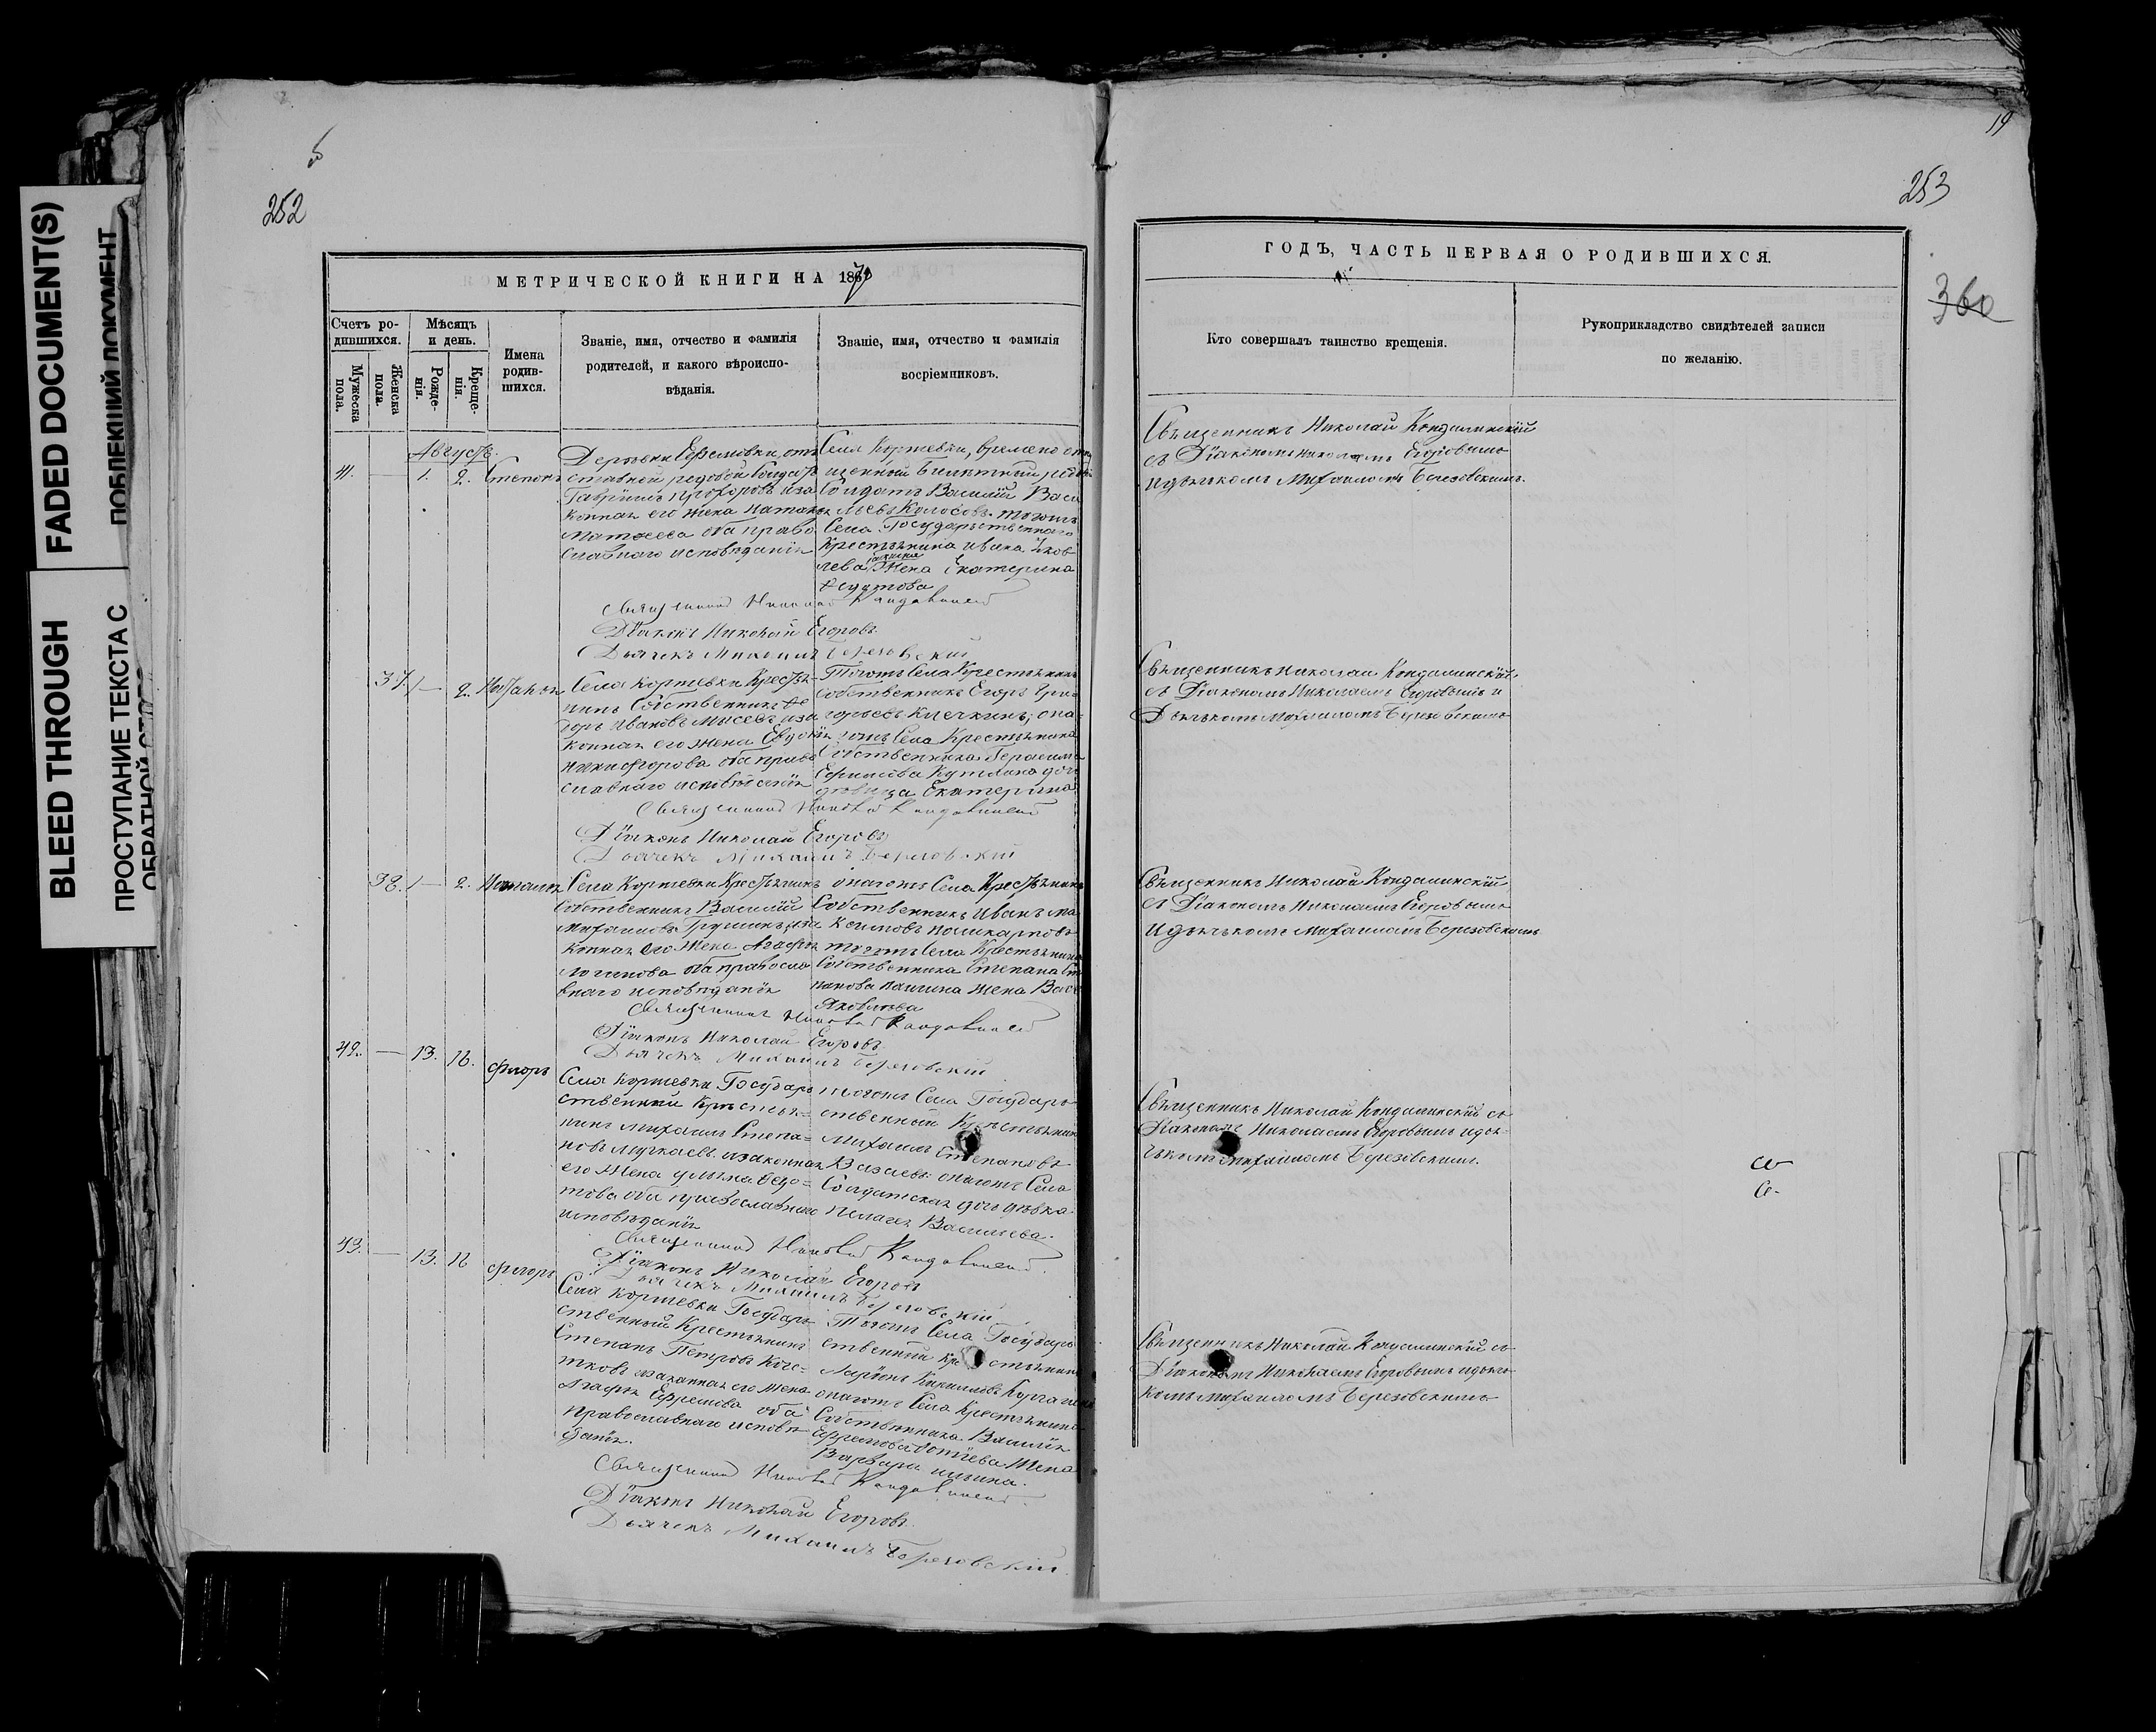 FADED DOCUMENT(S)
BLEED THROUGH
ПРОСТУПАНИЕ ТЕКСТА С
252
253
19
360
МЕТРИЧЕСКОЙ КНИГИ НА 1870
Счетъ ро-
дившихся.
Мѣсяцъ
и день.
Мужеска
пола.
Женска
пола.
Рожде-
нія.
Креще-
нія.
Имена
родив-
шихся.
Званіе, имя, отчество и фамилія
родителей, и какого вѣроиспо-
вѣданія.
Званіе, имя, отчество и фамилія
воспріемниковъ.
Августъ.
41. — 1. 2. Степанъ
Деревни Ефремовки, отъ
ставной рядовой Солдатъ
Гавріилъ Прохоровъ и за
конная его жена Наталья
Матѳеева оба право
славнаго исповѣданія
Села Коржевки, времено отпу
щенный билетный рядовой
Солдатъ Василій Васи
льевъ Колосовъ. тогожъ
Села Государственнаго
Крестьянина Ивана Яков
лева жена Екатерина
Ѳедотова
Священникъ Николай Кандалинскій
Діаконъ Николай Егоровъ
Дьячекъ Михаилъ Березовскій
37. 1 — 2. Наталья
Села Коржевки Крестья-
нинъ Собственникъ Его
горъ Ивановъ Мысевъ и за
конная его жена Евдокія
Никифорова оба право
славнаго исповѣданія
Тогожъ Села Крестьянинъ
Собственникъ Егоръ Гри
горьевъ Клечкинъ; она-
гожъ Села Крестьянина
Собственника Герасима
Ефимова Кутлина дочь
дѣвица Екатерина
Священникъ Николай Кандалинскій
Діаконъ Николай Егоровъ
Дьячекъ Михаилъ Березовскій
38. 1 — 2. Наталья
Села Коржевки Крестьянинъ
Собственникъ Василій
Михайловъ Грушинъ и за
конная его жена Агафія
Логинова оба правосла
внаго исповѣданія
онагожъ Села Крестьянинъ
Собственникъ Иванъ Ма
ксимовъ Пошкарповъ
тогожъ Села Крестьянина
Собственника Степана Сте
панова Паигина жена Васса
Яковлева
Священникъ Николай Кандалинскій
Діаконъ Николай Егоровъ
Дьячекъ Михаилъ Березовскій
42. — 13. 16. Флоръ
Села Коржевки Государ
ственный Крестья-
нинъ Михаилъ Степа-
новъ Мучкаевъ и законная
его жена Ульяна Ѳедо-
това оба православнаго
исповѣданія
тогожъ Села Государ
ственный Крестьянинъ
Михаилъ Степановъ
Вазаевъ: онагожъ Села
Солдатская дочь дѣвка
Пелагея Васильева.
Священникъ Николай Кандалинскій
Діаконъ Николай Егоровъ
Дьячекъ Михаилъ Березовскій
43. — 13. 16 Флоръ
Села Коржевки Государ
ственный Крестьянинъ
Степанъ Петровъ Коче-
тковъ и законная его жена
Агафія Ефремова оба
Православнаго исповѣ
данія.
Тогожъ Села Государ
ственный Крестьянинъ
Ларіонъ Кириловъ Корчагинъ
онагожъ Села Крестьянина
Собственника Василія
Ефремова жена
Варвара Ильина.
Священникъ Николай Кандалинскій
Діаконъ Николай Егоровъ
Дьячекъ Михаилъ Березовскій
ГОДЪ, ЧАСТЬ ПЕРВАЯ О РОДИВШИХСЯ.
Кто совершалъ таинство крещенія.
Рукоприкладство свидѣтелей записи
по желанію.
Священникъ Николай Кандалинскій
съ Діакономъ Николаемъ Егоровымъ
и дьячькомъ Михаиломъ Березовскимъ.
Священникъ Николай Кандалинскій
съ Діакономъ Николаемъ Егоровымъ и
Дьячькомъ Михаиломъ Березовскимъ
Священникъ Николай Кандалинскій
съ Діакономъ Николаемъ Егоровымъ
и дьячькомъ Михаиломъ Березовскимъ
Священникъ Николай Кандалинскій съ
Діакономъ Николаемъ Егоровымъ и дья-
чькомъ Михаиломъ Березовскимъ.
Священникъ Николай Кандалинскій съ
Діакономъ Николаемъ Егоровымъ и дьяч-
комъ Михаиломъ Березовскимъ